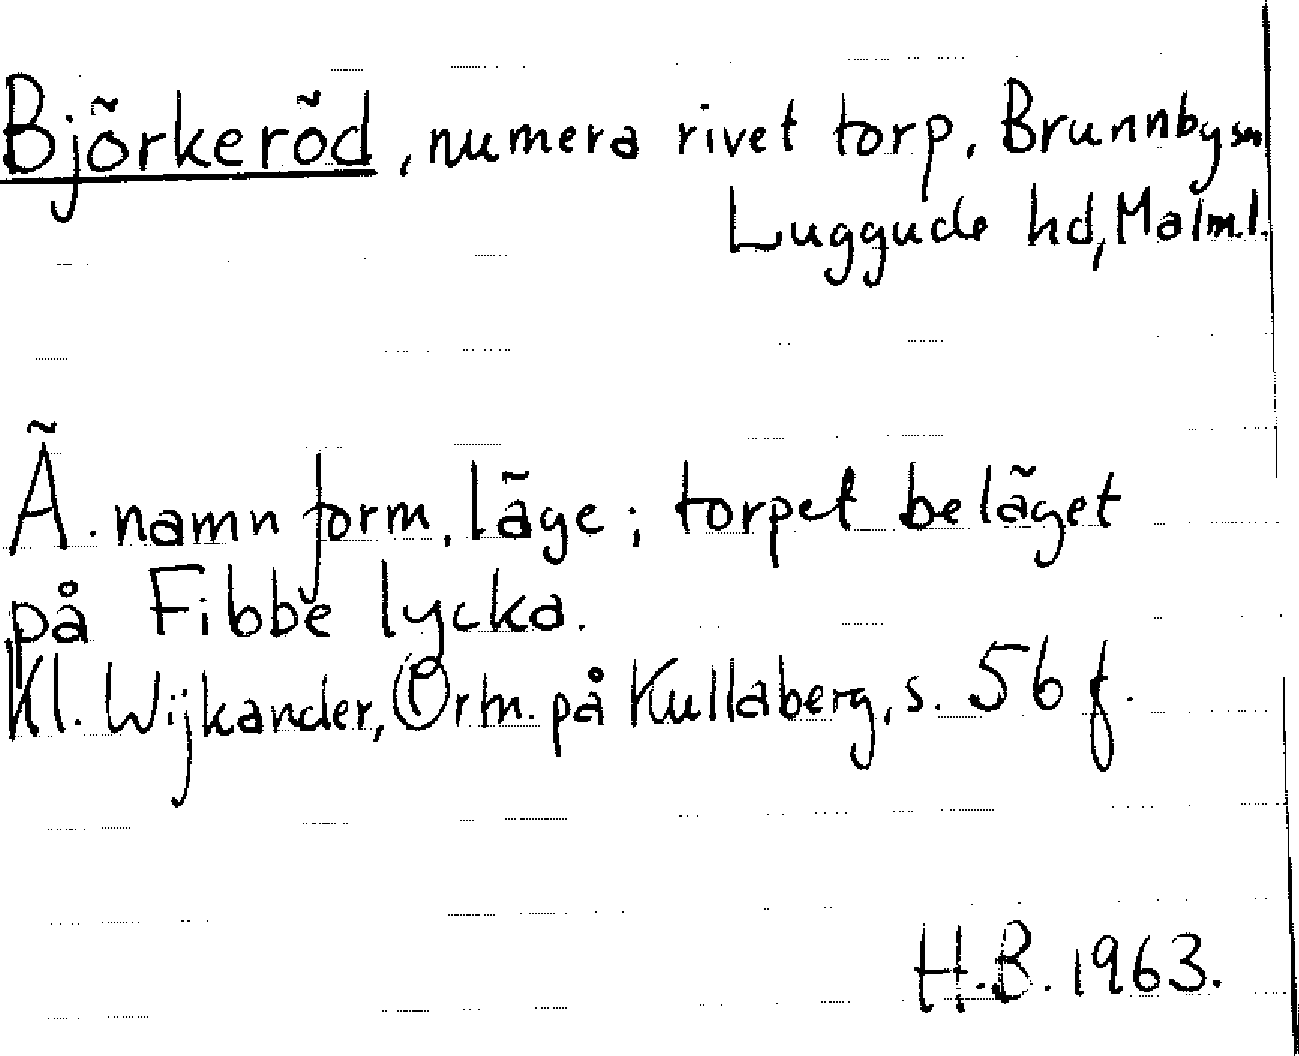 Björkeröd, numera rivet torp, Brunnby sn
Luggude hd, Malm.l.
Ä. namn form, läge; torpet beläget
på Fibbe lycka.
Kl. Wijkander, Ortn. på Kullaberg, s. 56 f.
H.B. 1963.